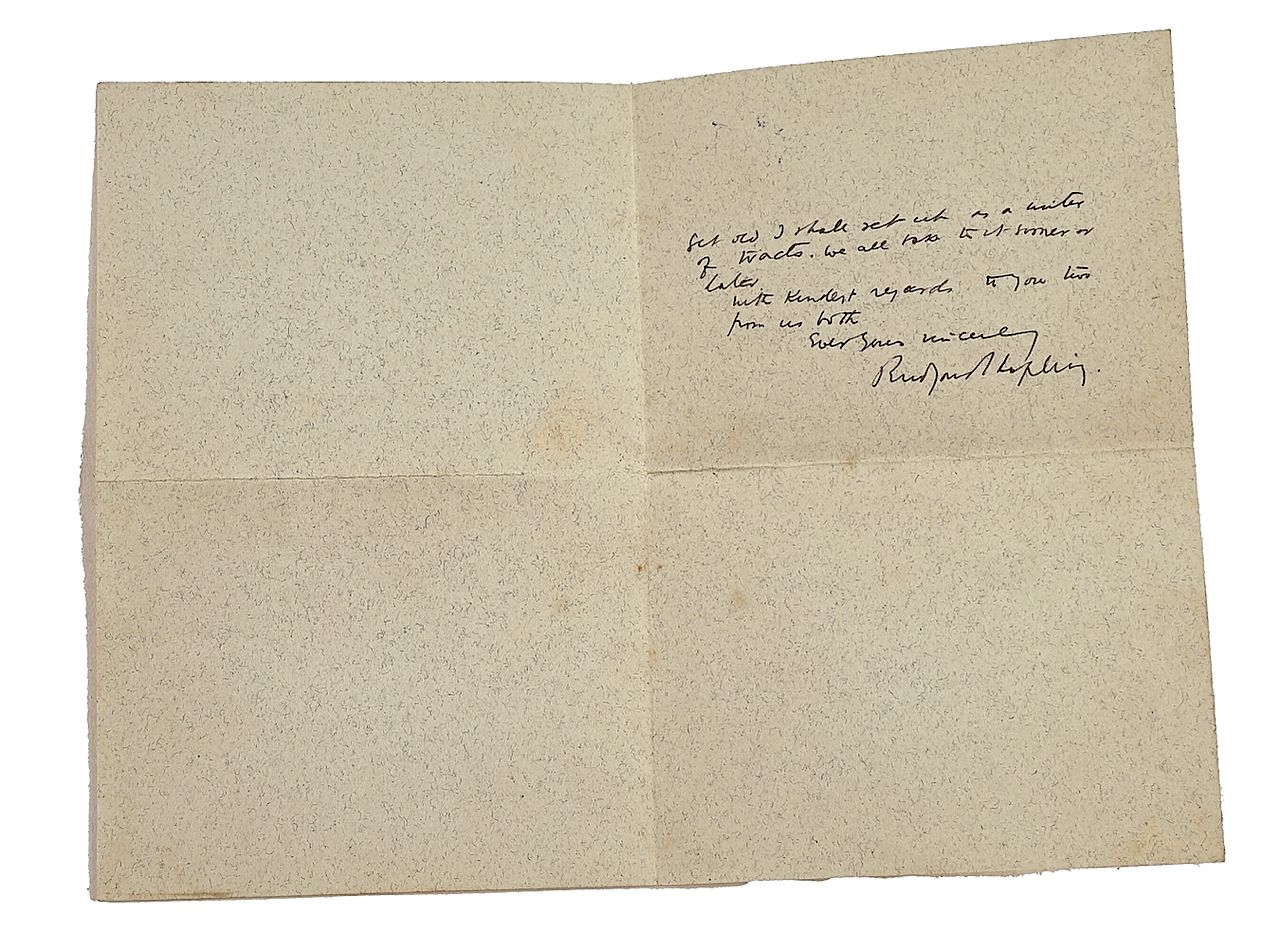 get old I shall set up as a writer
of tracts. We all take to it sooner or
later.
With kindest regards to you two
from us both
Ever yours sincerely
Rudyard Kipling.